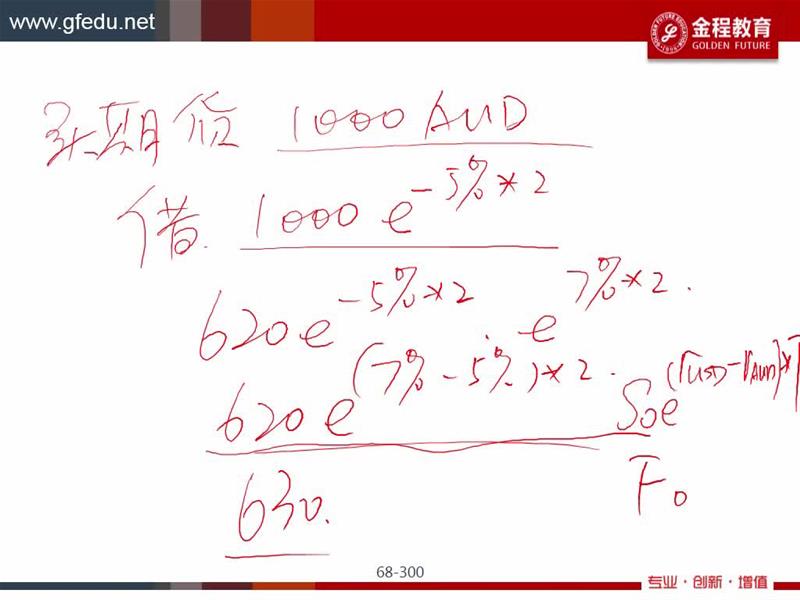 www.gfedu.net
金程教育
GOLDEN FUTURE
买期货 1000 AUD
借. 1000 e^{-5%*2}
620 e^{-5%*2} · e^{7%*2}.
620 e^{(7%-5%)*2}. S₀e^{(r_{USD}-r_{AUD})*T}
630. F₀
68-300
专业·创新·增值